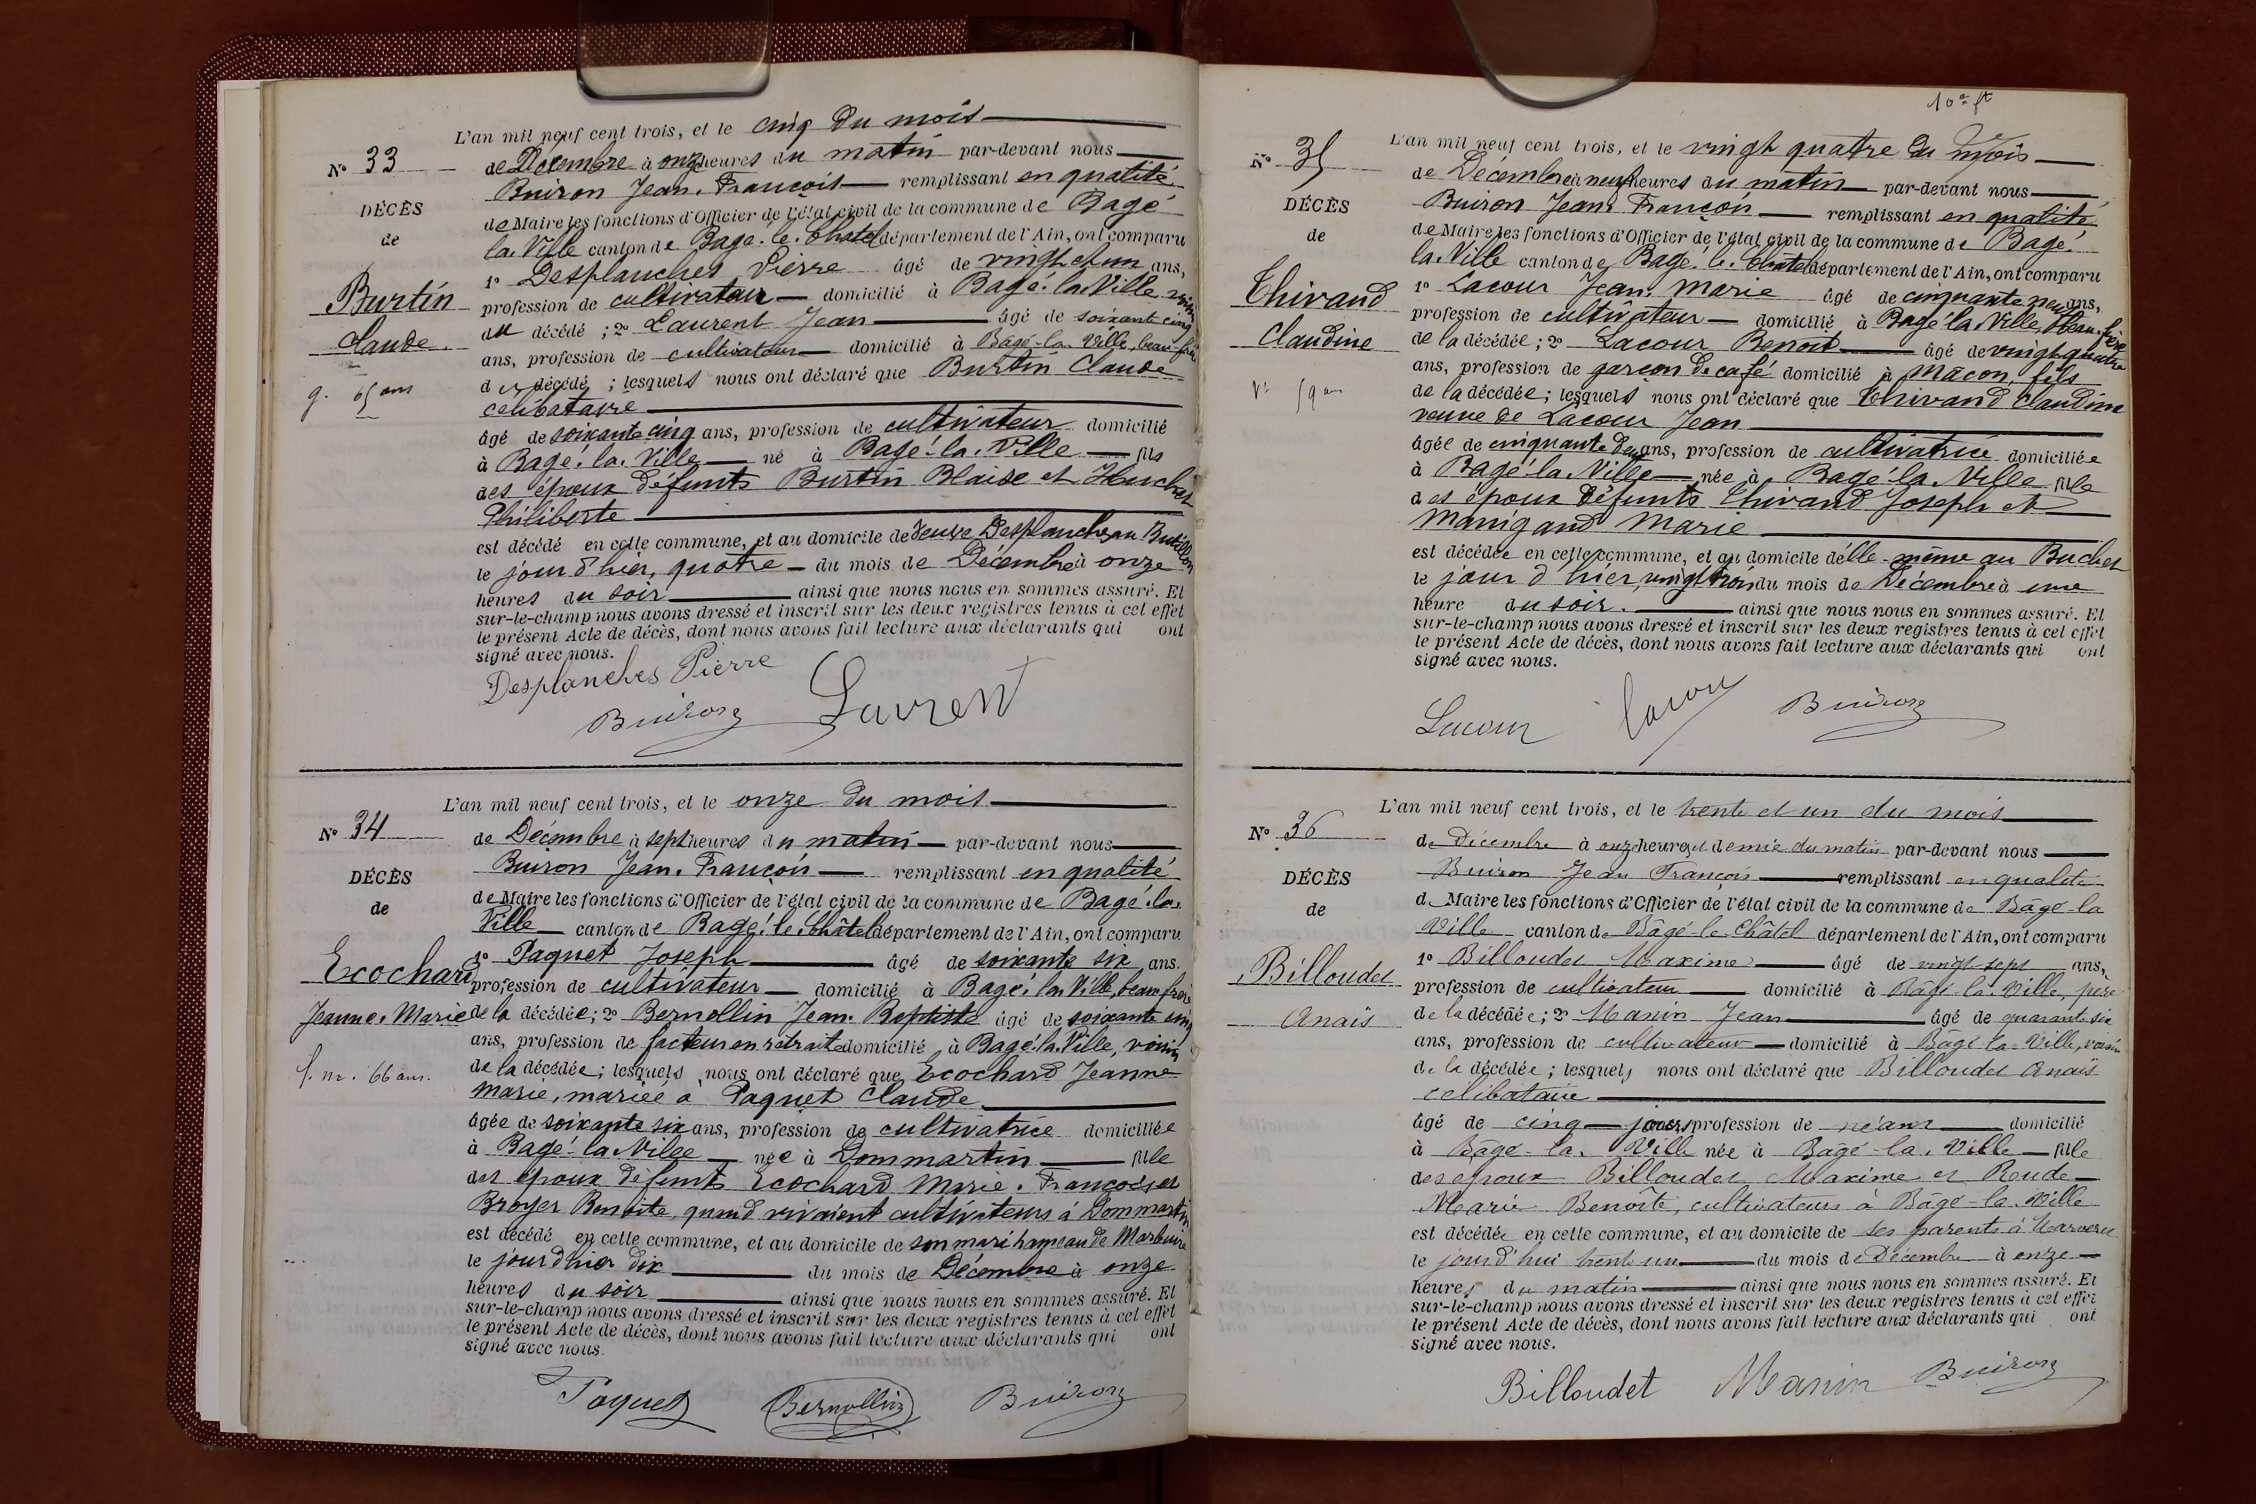 L'an mil neuf cent trois, et le cinq du mois
N° 33
de Décembre à onze heures du matin par-devant nous
Buiron Jean. François remplissant en qualité
DÉCÈS
de Maire les fonctions d'Officier de l'état civil de la commune de Bagé
de
la. Ville canton de Bagé. le. Chatel département de l'Ain, ont comparu
1° Desplanches Pierre âgé de vingt et un ans,
Burtin
profession de cultivateur domicilié à Bagé. la. Ville, voisin
Claude.
du décédé ; 2° Laurent Jean âgé de soixante cinq
ans, profession de cultivateur domicilié à Bagé-la-Ville, beau frère
g. 65 ans
du décédé ; lesquels nous ont déclaré que Burtin Claude
célibataire
âgé de soixante cinq ans, profession de cultivateur domicilié
à Bagé. la. Ville né à Bagé. la. Ville fils
des époux défunts Burtin Blaise et
Philiberte
est décédé en cette commune, et au domicile de veuve Desplanches au
le jour d'hier, quatre du mois de Décembre à onze
heures du soir ainsi que nous nous en sommes assuré. Et
sur-le-champ nous avons dressé et inscrit sur les deux registres tenus à cet effet
le présent Acte de décès, dont nous avons fait lecture aux déclarants qui ont
signé avec nous.
Desplanches Pierre
Buiron Laurent
L'an mil neuf cent trois, et le onze du mois
N° 34
de Décembre à sept heures du matin par-devant nous
Buiron Jean. François remplissant en qualité
DÉCÈS
de Maire les fonctions d'Officier de l'état civil de la commune de Bagé. la.
de
Ville canton de Bagé. le. Châtel département de l'Ain, ont comparu
1° Paquet Joseph âgé de soixante six ans.
Ecochard
profession de cultivateur domicilié à Bagé. la. Ville, beau frère
Jeanne. Marie
de la décédée ; 2° Bernollin Jean. Baptiste âgé de soixante cinq
ans, profession de facteur en retraite domicilié à Bagé. la. Ville, voisin
f. m. 66 ans.
de la décédée ; lesquels nous ont déclaré que Ecochard Jeanne
Marie, mariée à Paquet Claude
âgée de soixante six ans, profession de cultivatrice domiciliée
à Bagé. la. Ville née à Dommartin fille
des époux défunts Ecochard Marie. François et
Broyer Benoite, quand vivaient cultivateurs à Dommartin
est décédé en cette commune, et au domicile de son mari hameau de
le jour d'hier dix du mois de Décembre à onze
heures du soir ainsi que nous nous en sommes assuré. Et
sur-le-champ nous avons dressé et inscrit sur les deux registres tenus à cet effet
le présent Acte de décès, dont nous avons fait lecture aux déclarants qui ont
signé avec nous.
Paquet Bernollin Buiron
L'an mil neuf cent trois, et le vingt quatre du mois
N° 35
de Décembre à neuf heures du matin par-devant nous
Buiron Jean. François remplissant en qualité
DÉCÈS
de Maire les fonctions d'Officier de l'état civil de la commune de Bagé.
de
la. Ville canton de Bagé. le. Chatel département de l'Ain, ont comparu
1° Lacour Jean. Marie âgé de cinquante neuf ans,
Thivand
profession de cultivateur domicilié à Bagé. la. Ville, beau. frère
Claudine
de la décédée ; 2° Lacour Benoit âgé de vingt quatre
ans, profession de garçon de café domicilié à Mâcon, fils
Vve 59 ans
de la décédée ; lesquels nous ont déclaré que Thivand Claudine
veuve de Lacour Jean
âgée de cinquante neuf ans, profession de cultivatrice domiciliée
à Bagé. la. Ville née à Bagé. la. Ville fille
des époux défunts Thivand Joseph et
Manigand Marie
est décédée en cette commune, et au domicile d'elle-même au Buchet
le jour d'hier, vingt trois du mois de Décembre à une
heure du soir. ainsi que nous nous en sommes assuré. Et
sur-le-champ nous avons dressé et inscrit sur les deux registres tenus à cet effet
le présent Acte de décès, dont nous avons fait lecture aux déclarants qui ont
signé avec nous.
Lacour Lacour Buiron
L'an mil neuf cent trois, et le trente et un du mois
N° 36
de Décembre à onze heures et demie du matin par-devant nous
Buiron Jean François remplissant en qualité
DÉCÈS
de Maire les fonctions d'Officier de l'état civil de la commune de Bâgé-la
de
Ville canton de Bâgé-le-Châtel département de l'Ain, ont comparu
1° Billoudet Maxime âgé de vingt-sept ans,
Billoudet
profession de cultivateur domicilié à Bâgé-la-Ville, père
Anaïs
de la décédée ; 2° Manin Jean âgé de quarante six
ans, profession de cultivateur domicilié à Bâgé-la-Ville, voisin
de la décédée ; lesquels nous ont déclaré que Billoudet Anaïs
célibataire
âgé de cinq jours profession de néant domicilié
à Bâgé-la-Ville née à Bâgé-la-Ville fille
des époux Billoudet Maxime et Rude
Marie Benoîte, cultivateurs à Bâgé-la-Ville
est décédée en cette commune, et au domicile de ses parents à
le jourd'hui trente un du mois de Décembre à onze
heures du matin ainsi que nous nous en sommes assuré. Et
sur-le-champ nous avons dressé et inscrit sur les deux registres tenus à cet effet
le présent Acte de décès, dont nous avons fait lecture aux déclarants qui ont
signé avec nous.
Billoudet Manin Buiron